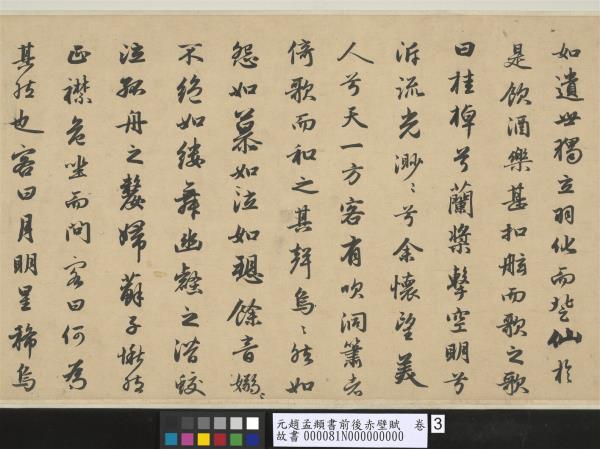 如遺世獨立羽化而登仙於
是飲酒樂甚扣舷而歌之歌
曰桂棹兮蘭槳擊空明兮
泝流光渺〻兮余懷望美
人兮天一方客有吹洞簫者
倚歌而和之其聲烏〻然如
怨如慕如泣如愬餘音嫋〻
不絕如縷舞幽壑之潛蛟
泣孤舟之嫠婦蘇子愀然
正襟危坐而問客曰何為
其然也客曰月明星稀烏
元趙孟頫書前後赤壁賦 卷 3
故書 000081N000000000